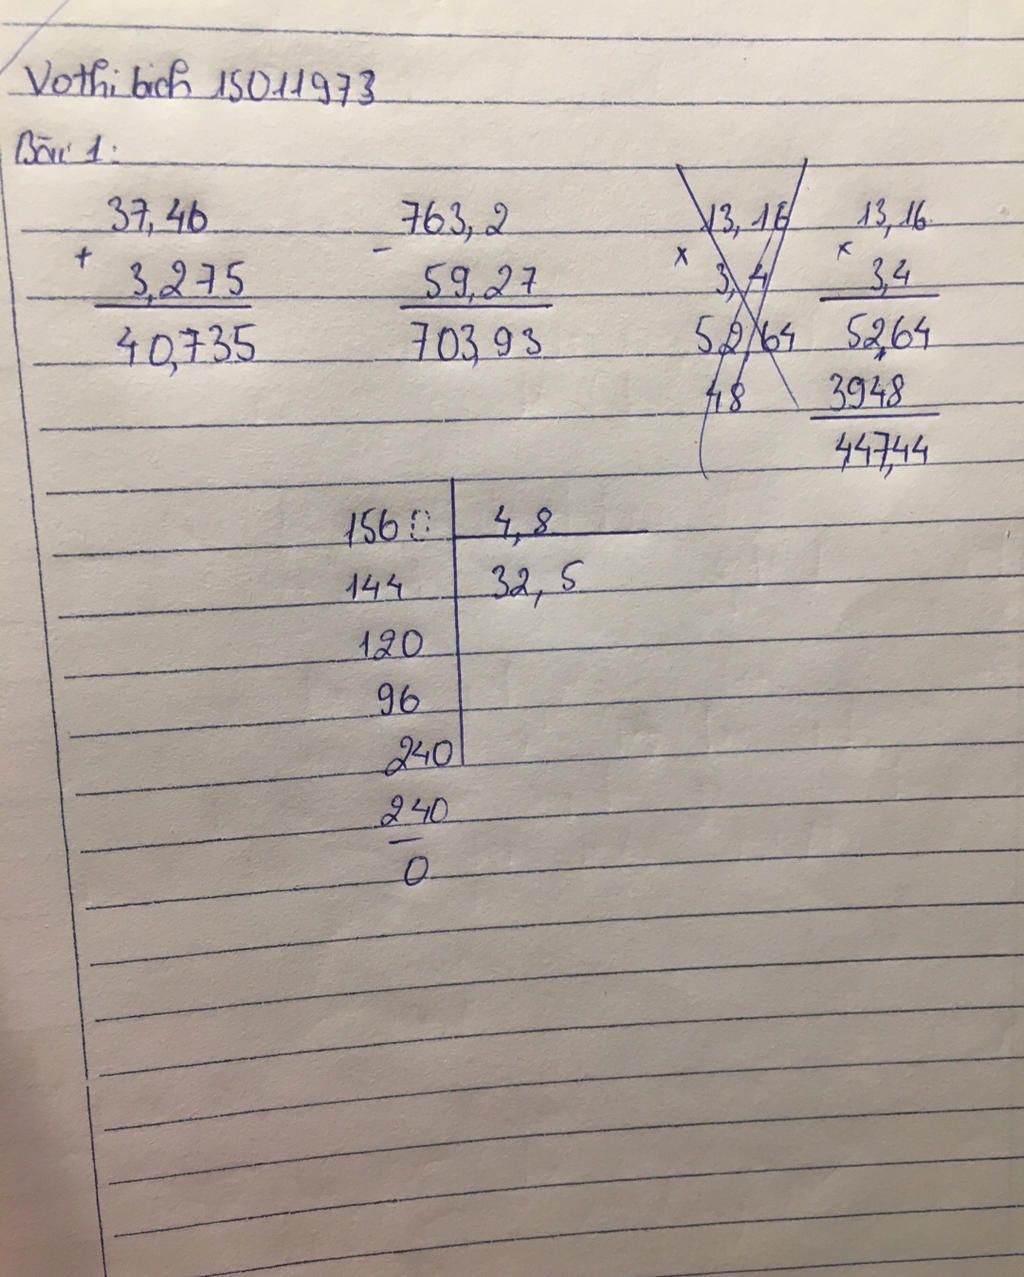 Vothi bich 15011973
Bài 1:
37,46
+
3,275
40,735
763,2
-
59,27
703,93
13,16
x
3,4
52,64
48
13,16
x
3,4
52,64
3948
447,44
1560
4,8
144
32,5
120
96
240
240
0